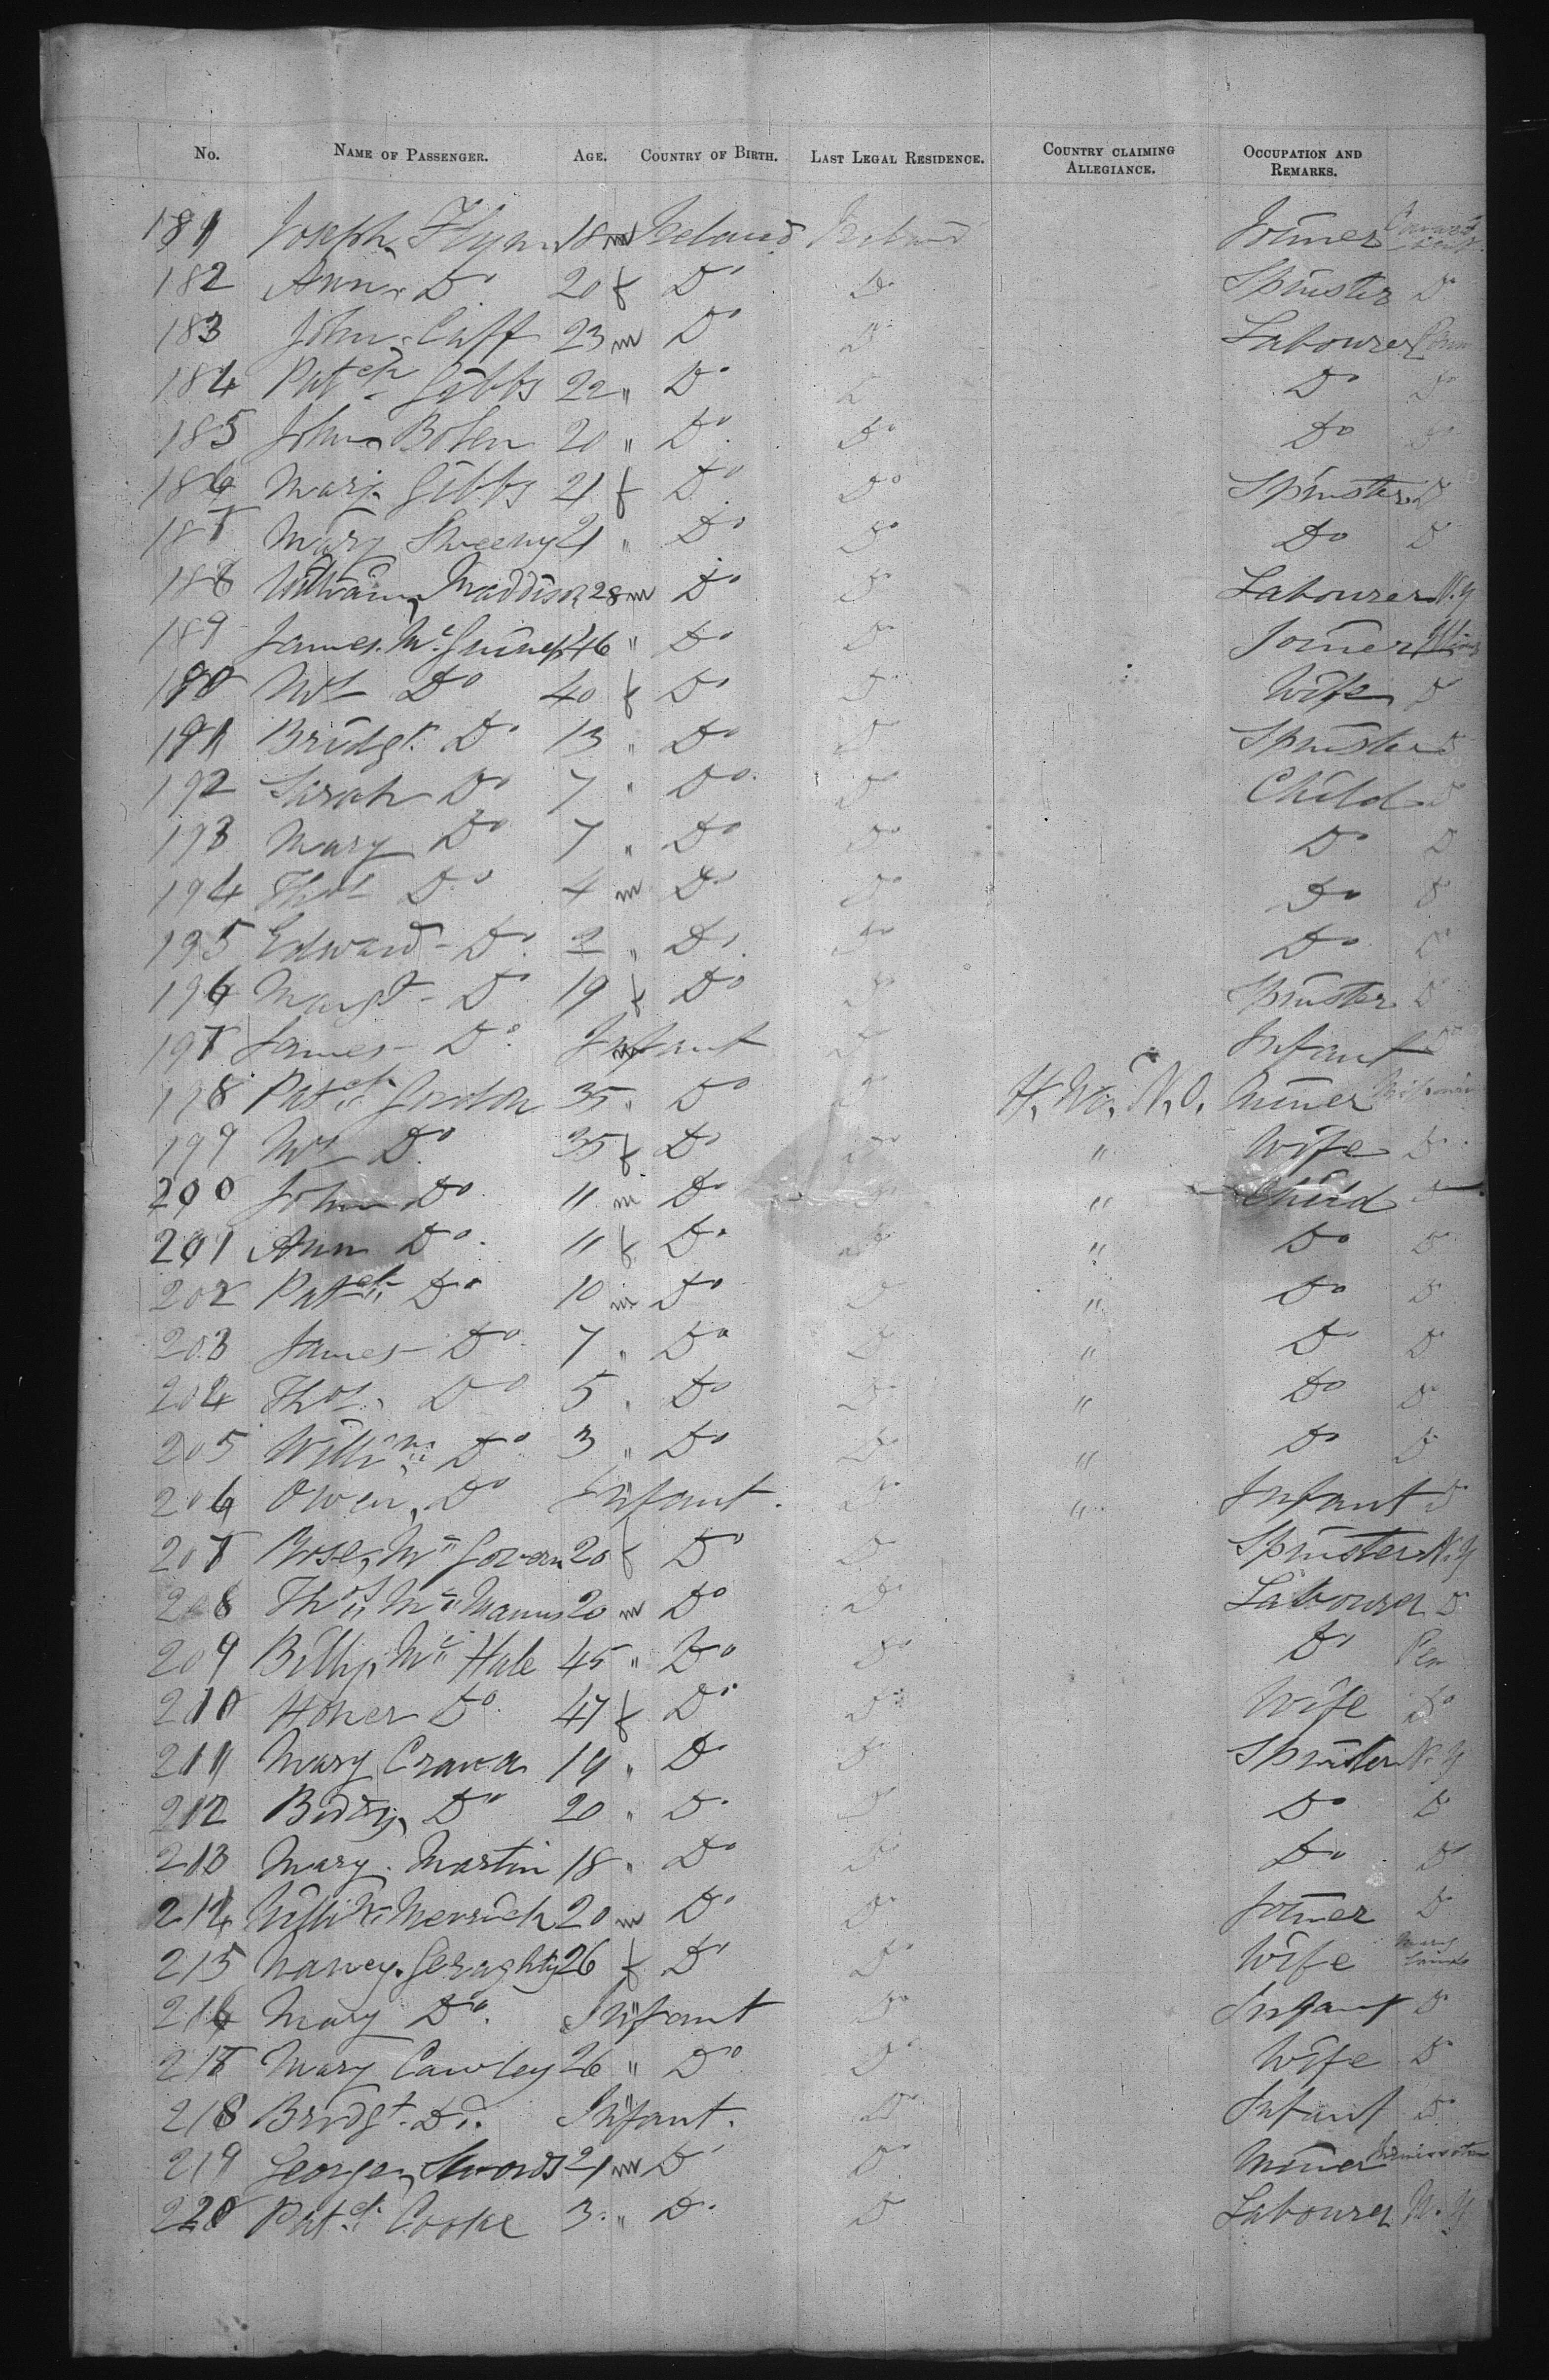 No. NAME OF PASSENGER. AGE. COUNTRY OF BIRTH. LAST LEGAL RESIDENCE. COUNTRY CLAIMING ALLEGIANCE. OCCUPATION AND REMARKS.
181 Joseph Flynn 18 m Ireland Ireland Joiner
182 Ann Do 20 f Do Do Spinster Do
183 John Caff 23 m Do Do Labourer Penn
184 Patck Gibbs 22 " Do Do Do Do
185 John Bolen 20 " Do Do Do Do
186 Mary Gibbs 21 f Do Do Spinster Do
187 Mary Sweeny 21 " Do Do Do Do
188 William Maddison 28 m Do Do Labourer N.Y
189 James Mc 46 " Do Do Joiner Illinois
190 Mrs Do 40 f Do Do Wife Do
191 Bridgt. Do 13 " Do Do Spinster Do
192 Sarah Do 7 " Do Do Child Do
193 Mary Do 7 " Do Do Do Do
194 Thos Do 4 m Do Do Do Do
195 Edward Do 2 " Do Do Do Do
196 Margt Do 19 f Do Do Spinster Do
197 James Do Infant Do Infant Do
198 Patck 35 " Do Do H. No. N.O. Miner
199 Mrs Do 35 f Do Do " Wife Do
200 John Do 11 m Do Do " Child Do
201 Ann Do 11 f Do Do " Do Do
202 Patck Do 10 m Do Do " Do Do
203 James Do 7 " Do Do " Do Do
204 Thos. Do 5 " Do Do " Do Do
205 Willm Do 3 " Do Do " Do Do
206 Owen Do Infant Do " Infant Do
207 Rose Mc Govern 20 f Do Do Spinster N.Y
208 Thos Mc Manus 20 m Do Do Labourer Do
209 Billy Mc Hale 45 " Do Do Do Pen
210 Honer Do 47 f Do Do Wife Do
211 Mary Crava 19 " Do Do Spinster N.Y
212 Biddy Do 20 " Do Do Do Do
213 Mary Martin 18 " Do Do Do Do
214 Willm Merrick 20 m Do Do Joiner Do
215 Nancy Geraghty 26 f Do Do Wife
216 Mary Do Infant Do Infant Do
217 Mary Cawley 26 " Do Do Wife Do
218 Bridgt. Do. Infant. Do Infant Do
219 George Swords 21 m Do Do Miner
220 Patck Cooke 3 " Do Do Labourer N.Y